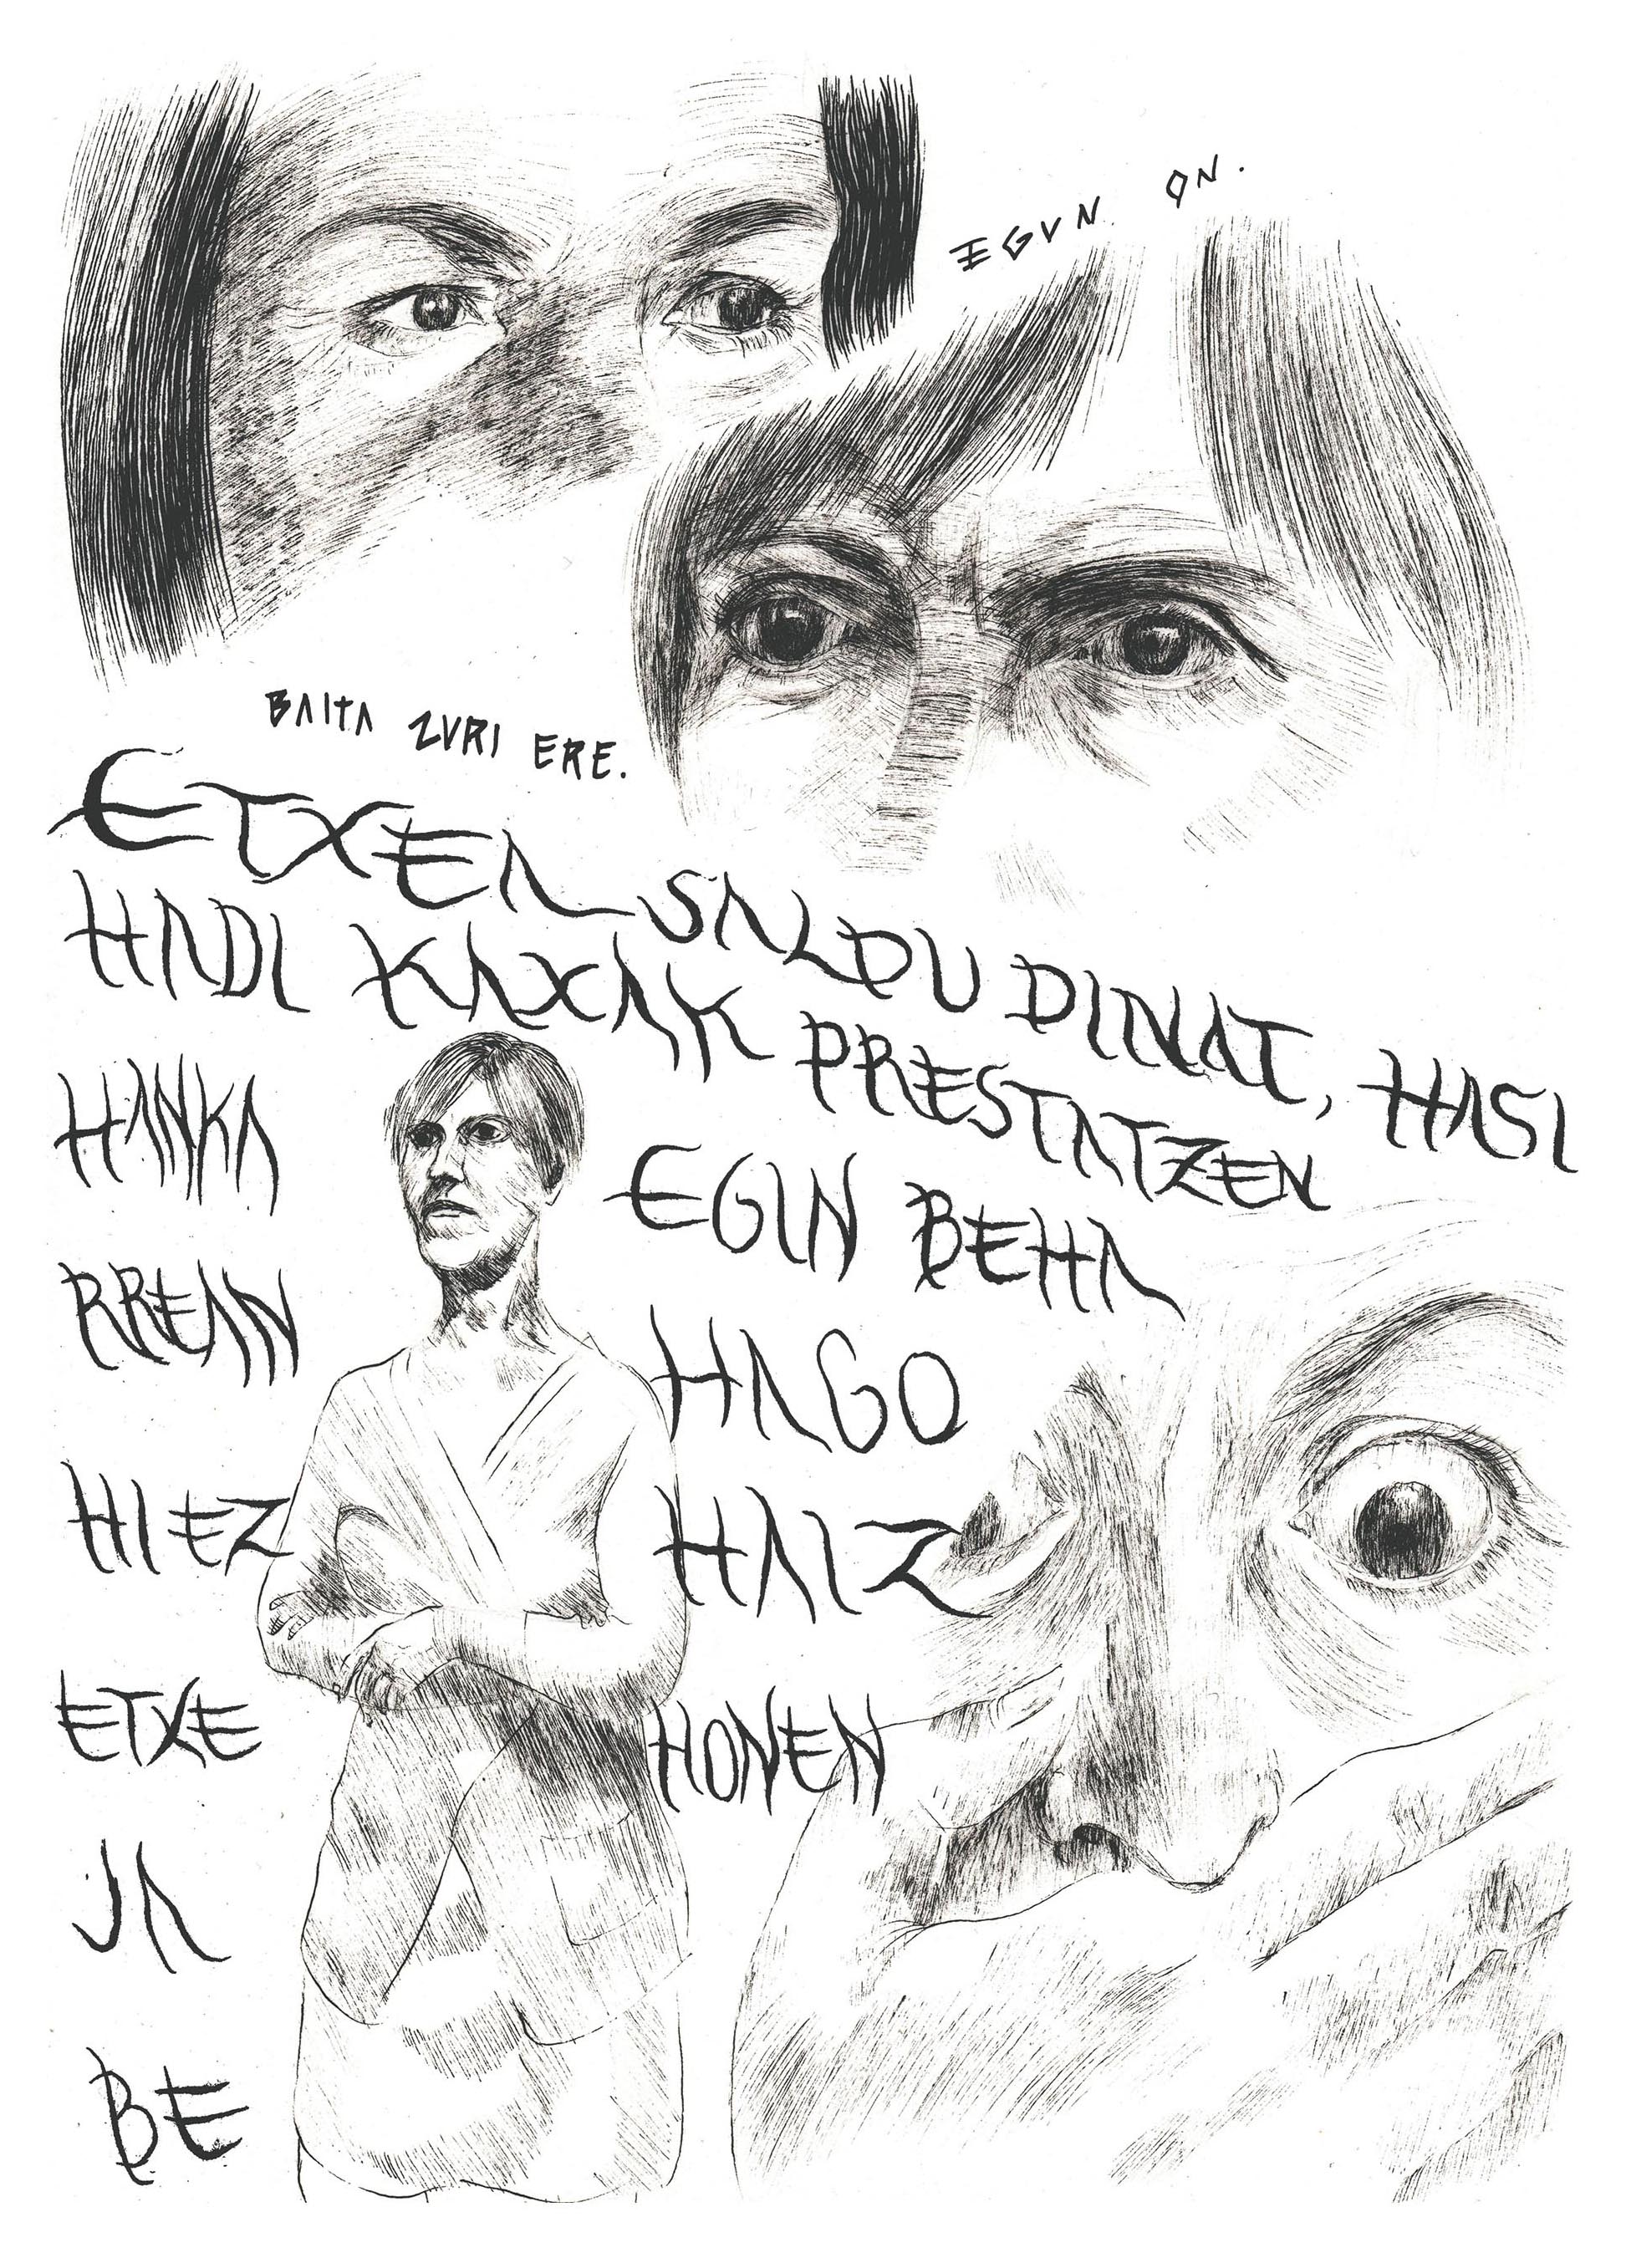 EGUN ON.
BAITA ZURI ERE.
ETXEA SALDU DINAT, HASI
HADI KAXAK PRESTATZEN
HANKA
EGIN BEHA
RREAN
HAGO
HI EZ
HAIZ
ETXE
HONEN
JA
BE